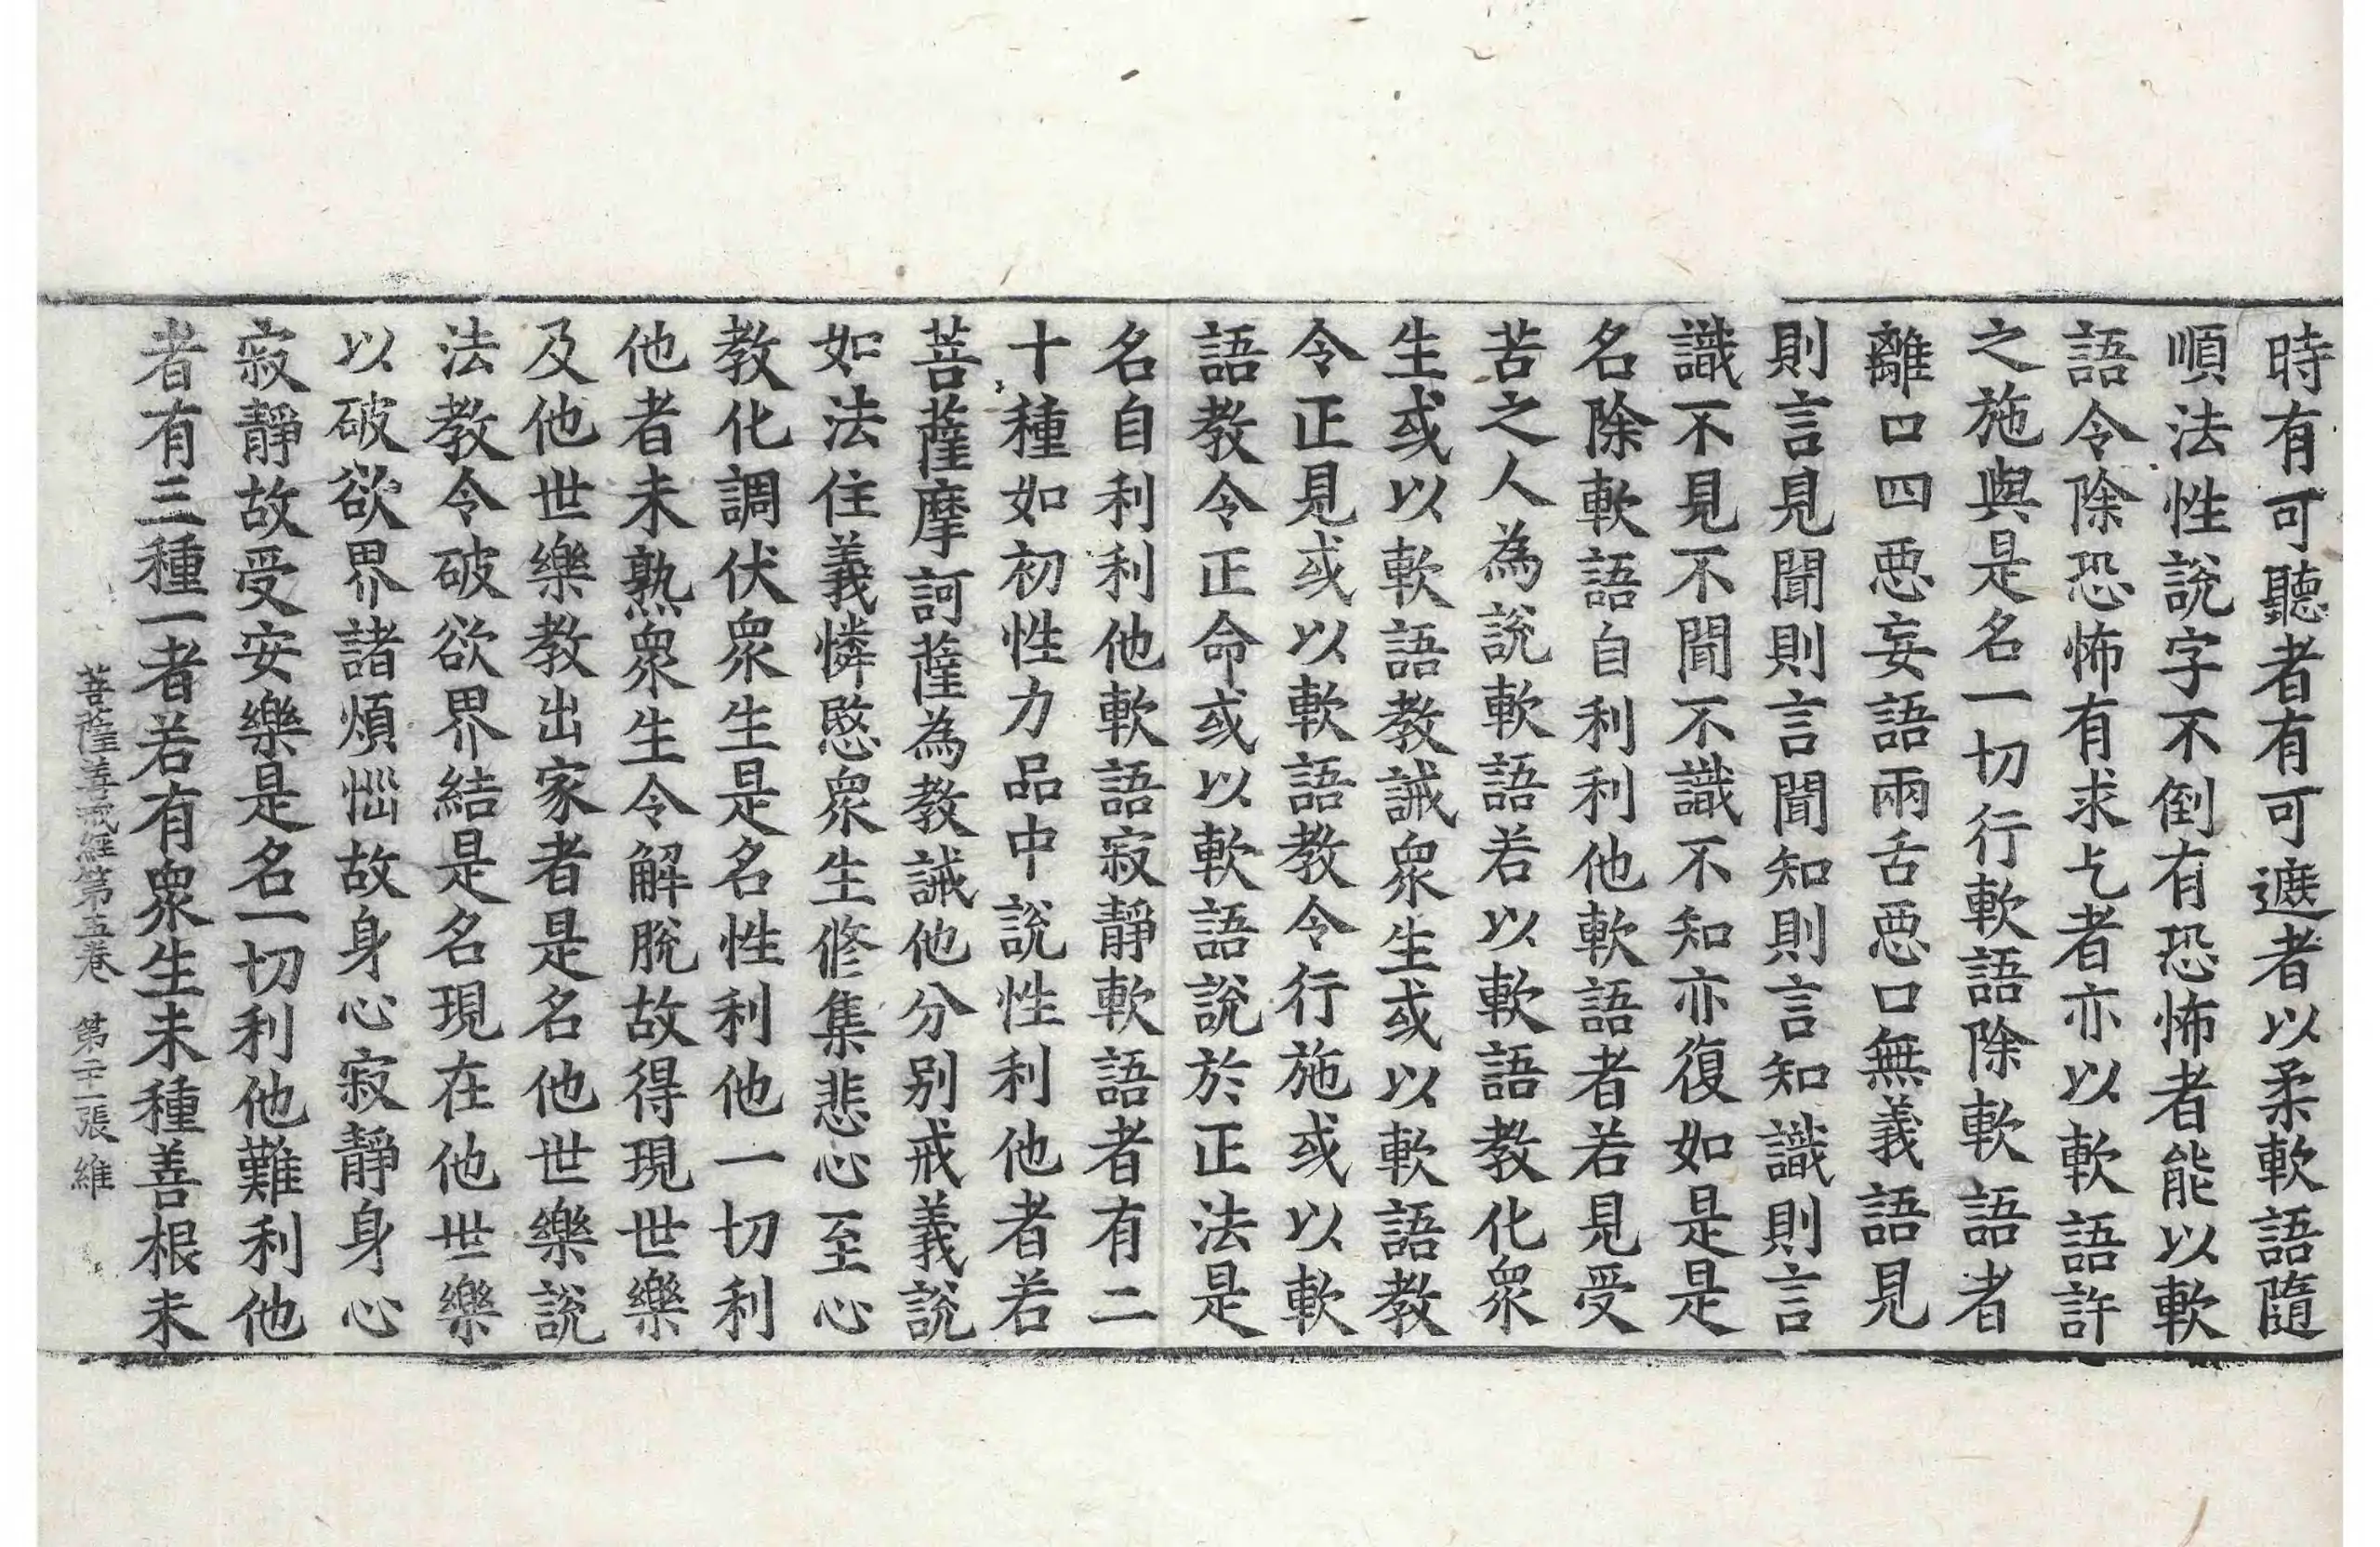 時有可聽者有可遮者以柔軟語隨
順法性說字不倒有恐怖者能以軟
語令除恐怖有求乞者亦以軟語許
之施與是名一切行軟語除軟語者
離口四惡妄語兩舌惡口無義語見
則言見聞則言聞知則言知識則言
識不見不聞不識不知亦復如是是
名除軟語自利利他軟語者若見受
苦之人為說軟語若以軟語教化眾
生或以軟語教誡眾生或以軟語教
令正見或以軟語教令行施或以軟
語教令正命或以軟語說於正法是
名自利利他軟語寂靜軟語者有二
十種如初性力品中說性利他者若
菩薩摩訶薩為教誡他分别戒義說
如法住義憐愍眾生修集悲心至心
教化調伏眾生是名性利他一切利
他者未熟眾生令解脫故得現世樂
及他世樂教出家者是名他世樂說
法教令破欲界結是名現在他世樂
以破欲界諸煩惱故身心寂靜身心
寂靜故受安樂是名一切利他難利他
者有三種一者若有眾生未種善根未
菩薩善戒經第五卷　第二十一張　維